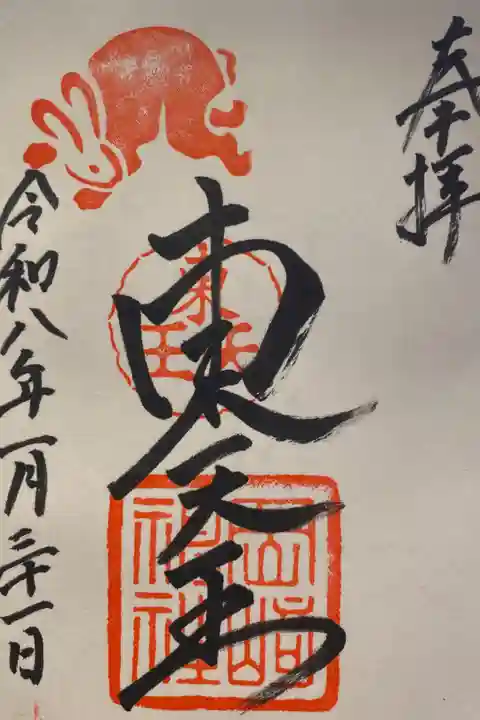 奉拝
東天王
東天王
岡崎神社
令和八年一月三十一日